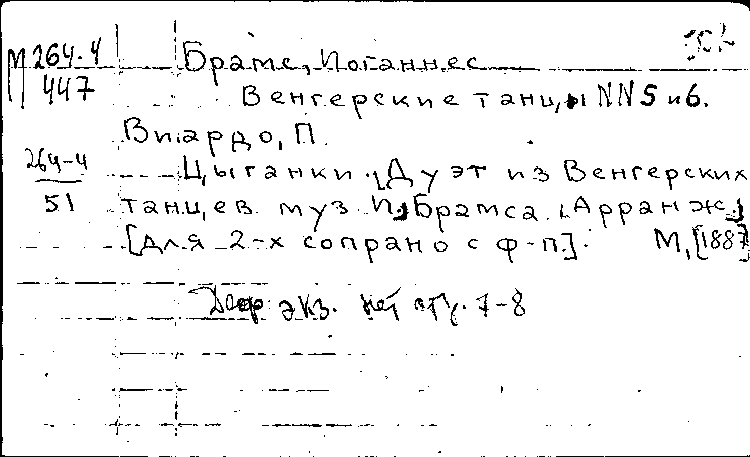 М 264-4
447
Брамс, Иоганнес
Венгерские танцы NN 5 и 6.
Виардо, П.
264-4
51
Цыганки. Дуэт из Венгерских
танцев муз. И. Брамса. Арранж.
[для 2-х сопрано с ф-п.]. М, [1887]
экз. нет стр. 7-8